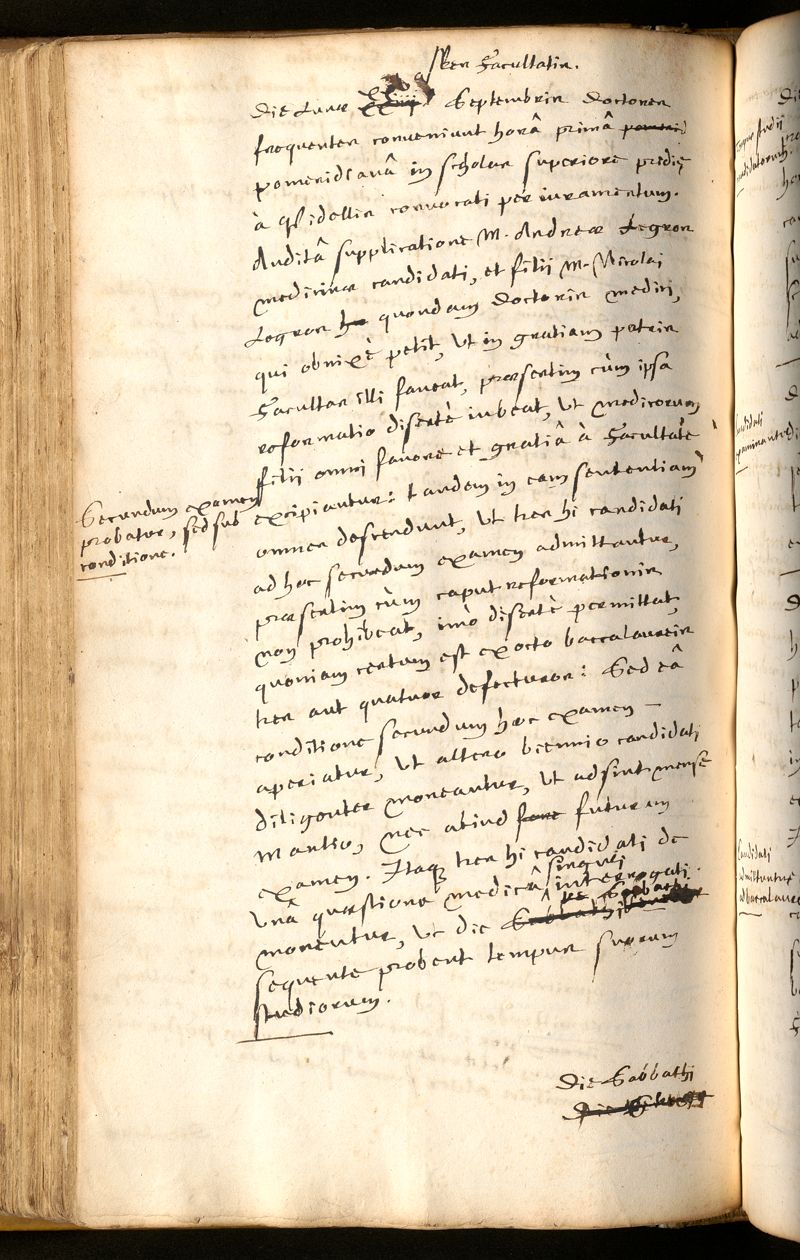 Facultatis.
Die Lunæ Septembris Doctores
frequenter conveniunt horâ primâ
pomeridianâ in scholis superiore
à convocati per iuramentum.
Auditâ supplicatione M. Andreæ Legros
medicinæ candidati, et filii M. Nicolai
Legros quondam Doctoris medici,
qui obnixè petit, ut in gratiam patris
Facultas illi faveat, præsertim cùm ipsa
reformatio disertè iubeat, ut medicorum
filii omni favore et gratiâ à Facultate
excipiantur: tandem in eam sententiam
omnes descendunt, ut tres hi candidati
ad hoc secundum examen admittantur,
præsertim cùm caput reformationis
non prohibeat, imò disertè permittat,
quoniam certum est ex octo baccalaureis
tres aut quatuor defecturos: Sed eâ
conditione secundum hoc examen
aperiatur, ut altero biennio candidati
diligenter moneantur, ut adsint mense
Martio, nec aliud fore futurum
examen. Itaque tres hi candidati de
unâ quæstione medicâ singuli interrogati
monentur, ut die Sabbathi
sequente probent tempus suorum
studiorum.
Secundum examen
probatur, sed sub
conditione.
Die Sabbathi
Candidati
admittuntur